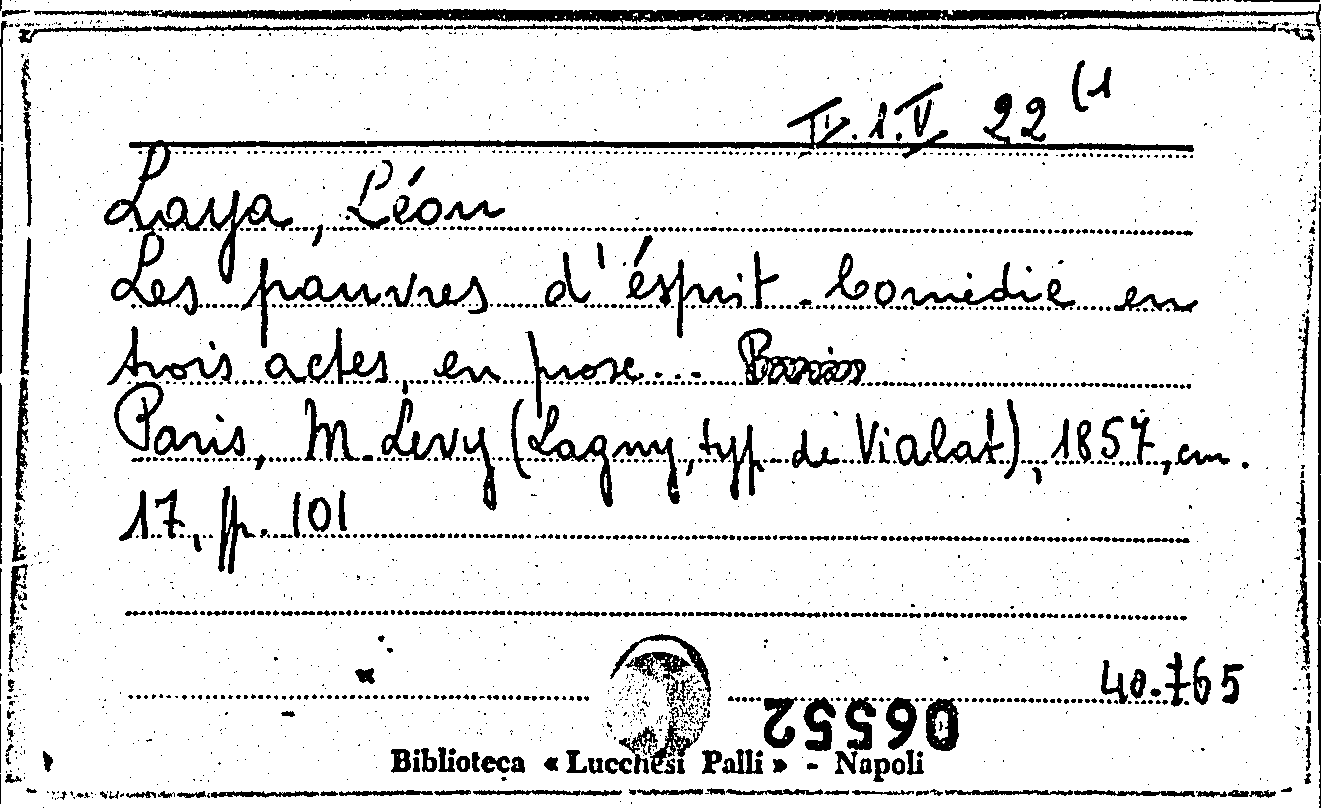 IV.1.V 22 (1
Laya, Léon
Les pauvres d'ésprit. Comédie en
trois actes, en prose...
Paris, M. Levy (Lagny, typ. de Vialat), 1857, cm.
17, pp. 101
40.765
06552
Biblioteca « Lucchesi Palli » - Napoli